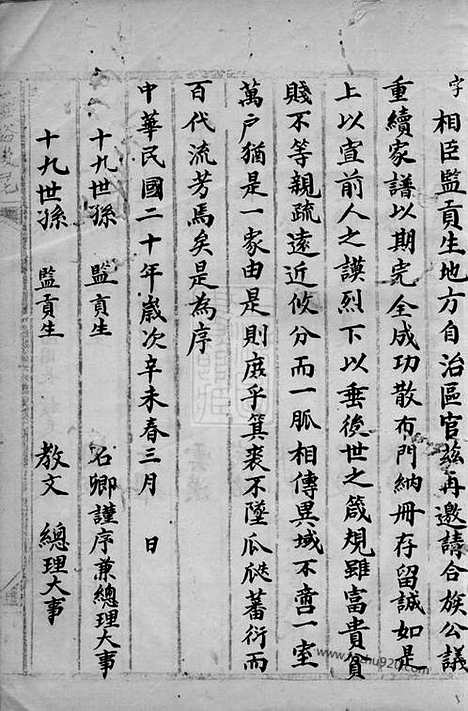 字相臣監貢生地方自治區官茲再邀請合族公議
重續家譜以期完全成功散布門納册存留誠如是
上以宣前人之謨烈下以垂後世之箴規雖富貴貧
賤不等親疏遠近攸分而一脈相傳異域不啻一室
萬戶猶是一家由是則庶乎箕裘不墜瓜瓞蕃衍而
百代流芳焉矣是為序
中華民國二十年歲次辛未春三月 日
十九世孫 監貢生 名卿謹序兼總理大事
十九世孫 監貢生 教文 總理大事